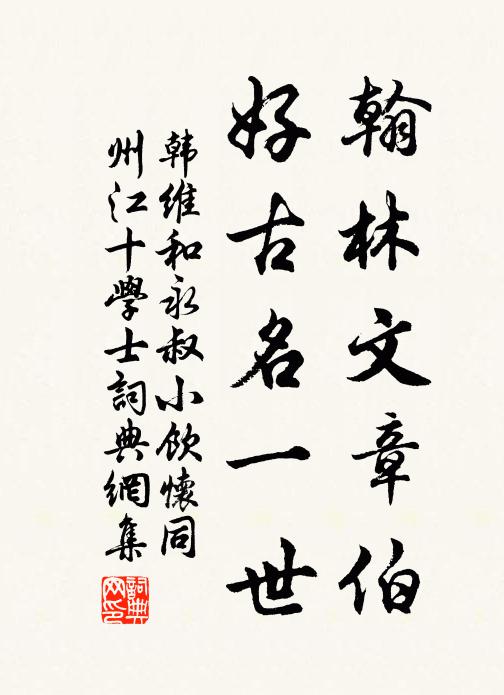 翰林文章伯
好古名一世
韩維和永叔小飲懷同
州江十學士詞典網集
詞典网印